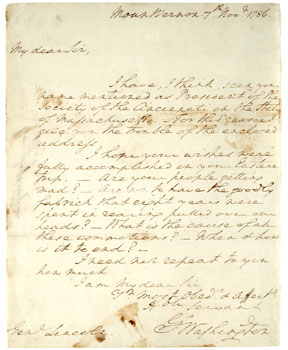 Mount Vernon 7th Novr 1786
My dear Sir,
I have, I think, seen your
name mentioned as President of the
Society of the Cincinnati in the State
of Massachusetts. For this reason I
give you the trouble of the enclosed
address.
I hope your wishes were
fully accomplished in your Eastern
trip. — Are your people getting
mad? — Are we to have the goodly
fabrick that eight years were
spent in rearing pulled over our
heads? — What is the cause of all
these commotions? — When & how
is it to end? —
I need not repeat to you
how much
I am My dear Sir
Yr most Obedt & affecte
Hble Servant
Go Washington
Genl Lincoln